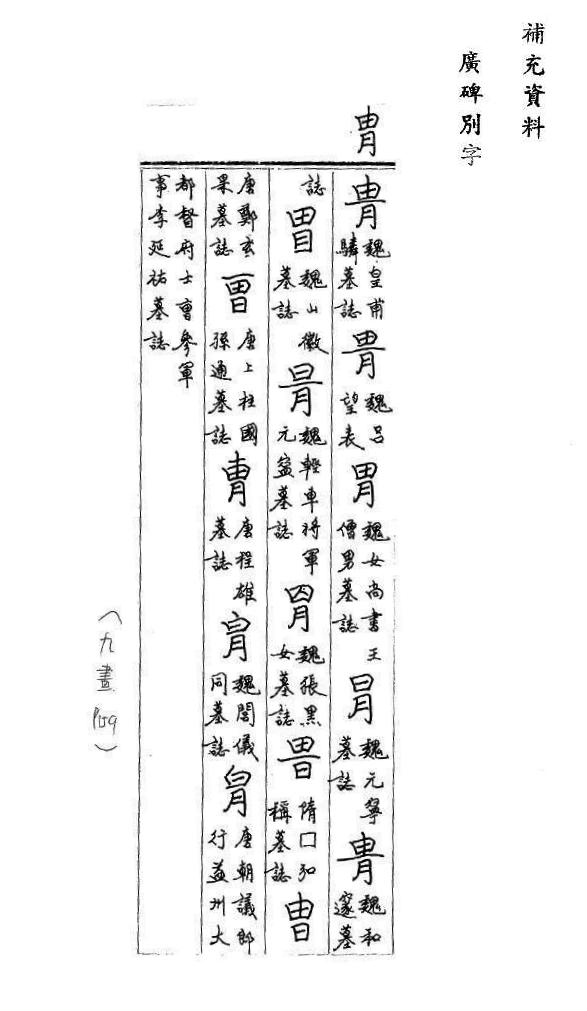 補充資料
廣碑別字
胄
魏皇甫驎墓誌
魏呂望表
魏女尚書王僧男墓誌
魏元寧墓誌
魏和邃墓誌
魏山徽墓誌
魏輕車將軍元寍墓誌
魏張黑女墓誌
隋囗弘稱墓誌
唐鄭玄果墓誌
唐上柱國孫通墓誌
唐程雄墓誌
魏閻儀同墓誌
唐朝議郎行益州大都督府士曹參軍事李延祐墓誌
(九畫 P159)